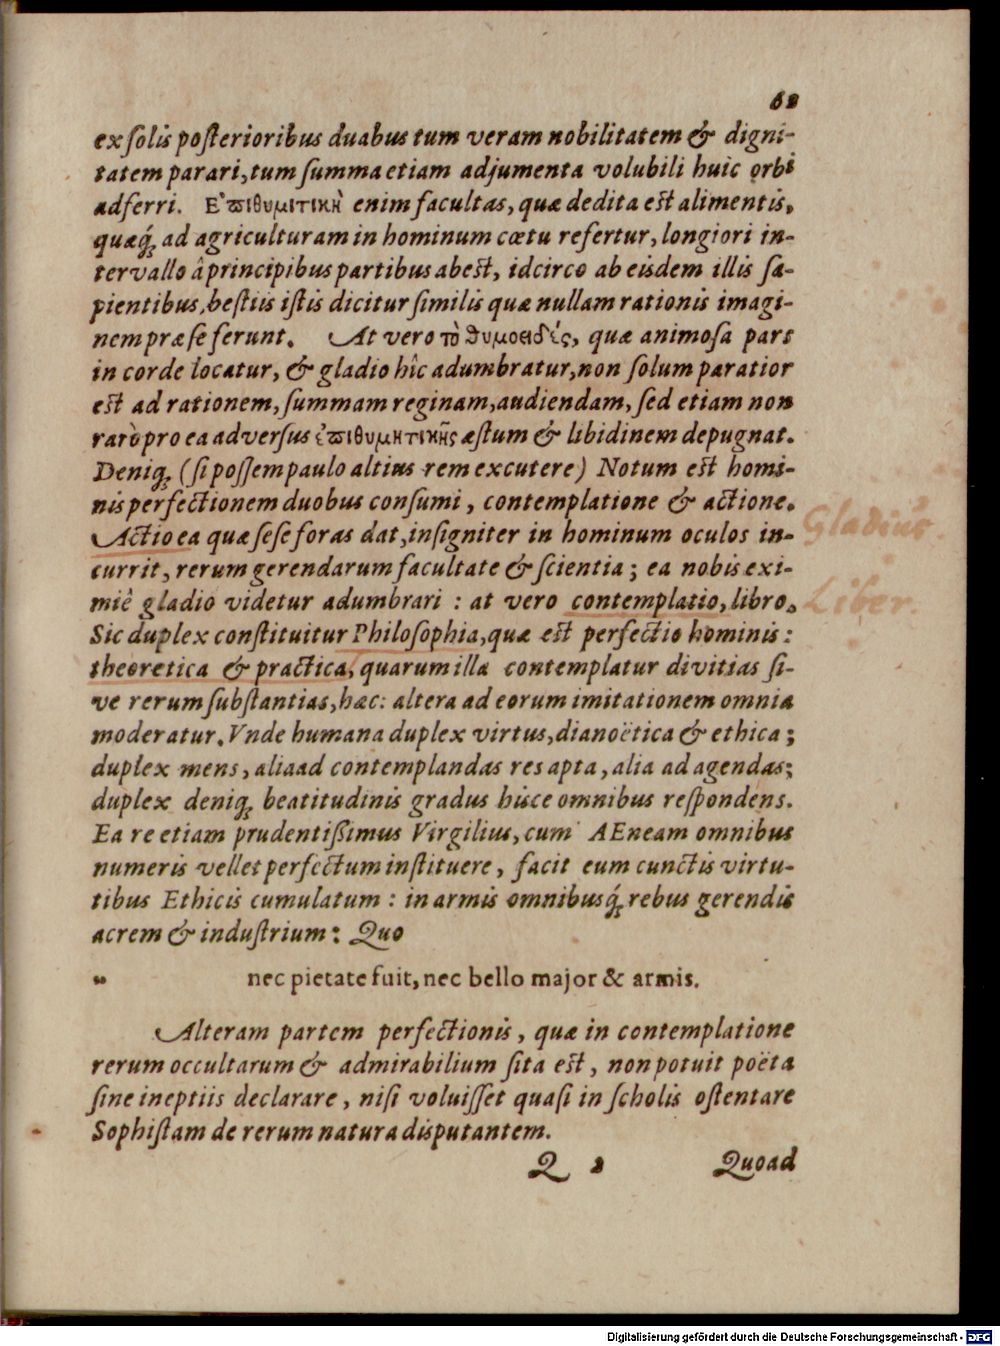 62
ex ſolis poſterioribus duabus tum veram nobilitatem & digni-
tatem parari, tum ſumma etiam adjumenta volubili huic orbi
adferri. Ἐπιθυμιτικὴ enim facultas, quæ dedita eſt alimentis,
quæq́ꝫ ad agriculturam in hominum cœtu refertur, longiori in-
tervallo â principibus partibus abeſt, idcirco ab eisdem illis ſa-
pientibus, beſtiis iſtis dicitur ſimilis quæ nullam rationis imagi-
nem præ ſe ferunt. At vero τὸ θυμοειδές, quæ animoſa pars
in corde locatur, & gladio hîc adumbratur, non ſolum paratior
eſt ad rationem, ſummam reginam, audiendam, ſed etiam non
rarò pro ea adverſus ἐπιθυμητικῆς æſtum & libidinem depugnat.
Deniqꝫ (ſi poſſem paulo altius rem excutere) Notum eſt homi-
nis perfectionem duobus conſumi, contemplatione & actione.
Actio ea quæ ſeſe foras dat, inſigniter in hominum oculos in-
currit, rerum gerendarum facultate & ſcientia; ea nobis exi-
miè gladio videtur adumbrari : at vero contemplatio, libro.
Gladius.
Liber.
Sic duplex conſtituitur Philoſophia, quæ eſt perfectio hominis:
theoretica & practica, quarum illa contemplatur divitias ſi-
ve rerum ſubſtantias, hæc: altera ad eorum imitationem omnia
moderatur. Vnde humana duplex virtus, dianoëtica & ethica;
duplex mens, alia ad contemplandas res apta, alia ad agendas;
duplex deniqꝫ beatitudinis gradus hisce omnibus reſpondens.
Ea re etiam prudentiſſimus Virgilius, cum AEneam omnibus
numeris vellet perfectum inſtituere, facit eum cunctis virtu-
tibus Ethicis cumulatum : in armis omnibusq́ꝫ rebus gerendis
acrem & induſtrium: Quo
„ nec pietate fuit, nec bello major & armis.
Alteram partem perfectionis, quæ in contemplatione
rerum occultarum & admirabilium ſita eſt, non potuit poëta
ſine ineptiis declarare, niſi voluiſſet quaſi in ſcholis oſtentare
Sophiſtam de rerum natura disputantem.
Q 2 Quoad
Digitalisierung gefördert durch die Deutsche Forschungsgemeinschaft - DFG